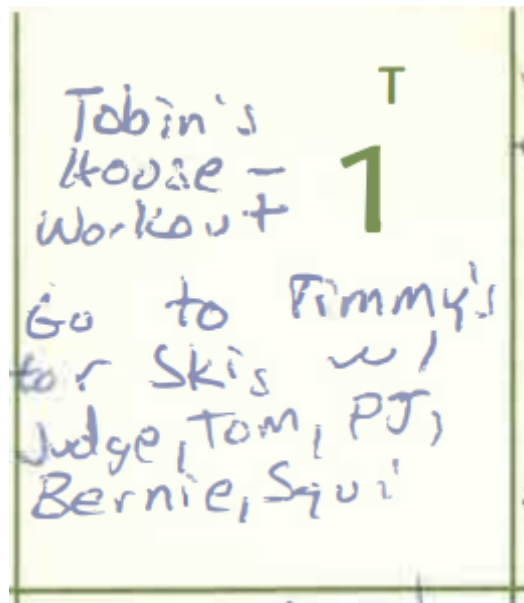 T
1
Tobin's
House -
Workout
Go to Timmy's
for Skis w/
Judge, Tom, PJ,
Bernie, Squi